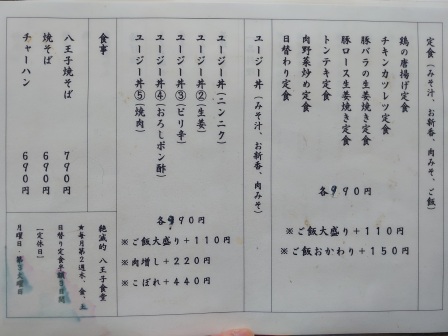 定食（みそ汁、お新香、肉みそ、ご飯）
鶏の唐揚げ定食
チキンカツレツ定食
豚バラの生姜焼き定食
豚ロース生姜焼き定食
トンテキ定食
肉野菜炒め定食
日替わり定食
各990円
※ご飯大盛り＋110円
※ご飯おかわり＋150円
ユージー丼（みそ汁、お新香、肉みそ）
ユージー丼①（ニンニク）
ユージー丼②（生姜）
ユージー丼③（ピリ辛）
ユージー丼④（おろしポン酢）
ユージー丼⑤（焼肉）
各990円
※ご飯大盛り＋110円
※肉増し＋220円
※こぼれ＋440円
食事
八王子焼そば 790円
焼そば 690円
チャーハン 690円
絶滅的 八王子食堂
☆毎月第2週木、金、土
日替り定食半
［定休日］
月曜日・第3火曜日